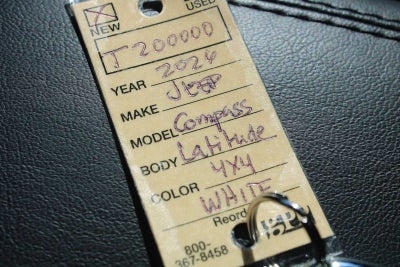 NEW USED
T 200000
YEAR 2024
MAKE Jeep
MODEL Compass
BODY Latitude
4X4
COLOR WHITE
Reord
800-
367-8458